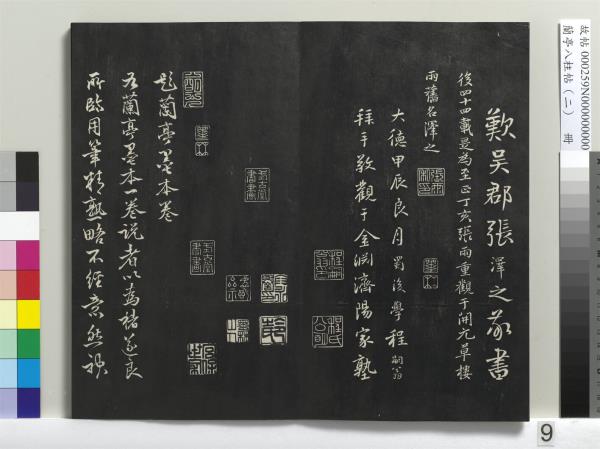 歎吳郡張澤之敬書
後四十四載是為至正丁亥張雨重觀于開元草樓
雨舊名澤之
大德甲辰良月蜀後學程嗣翁
拜手敬觀于金淵濟陽家塾
題蘭亭墨本卷
右蘭亭墨本一卷說者以為褚遂良
所臨用筆精熟略不經意然視
故帖 000259N000000000
蘭亭八柱帖(二) 冊
9